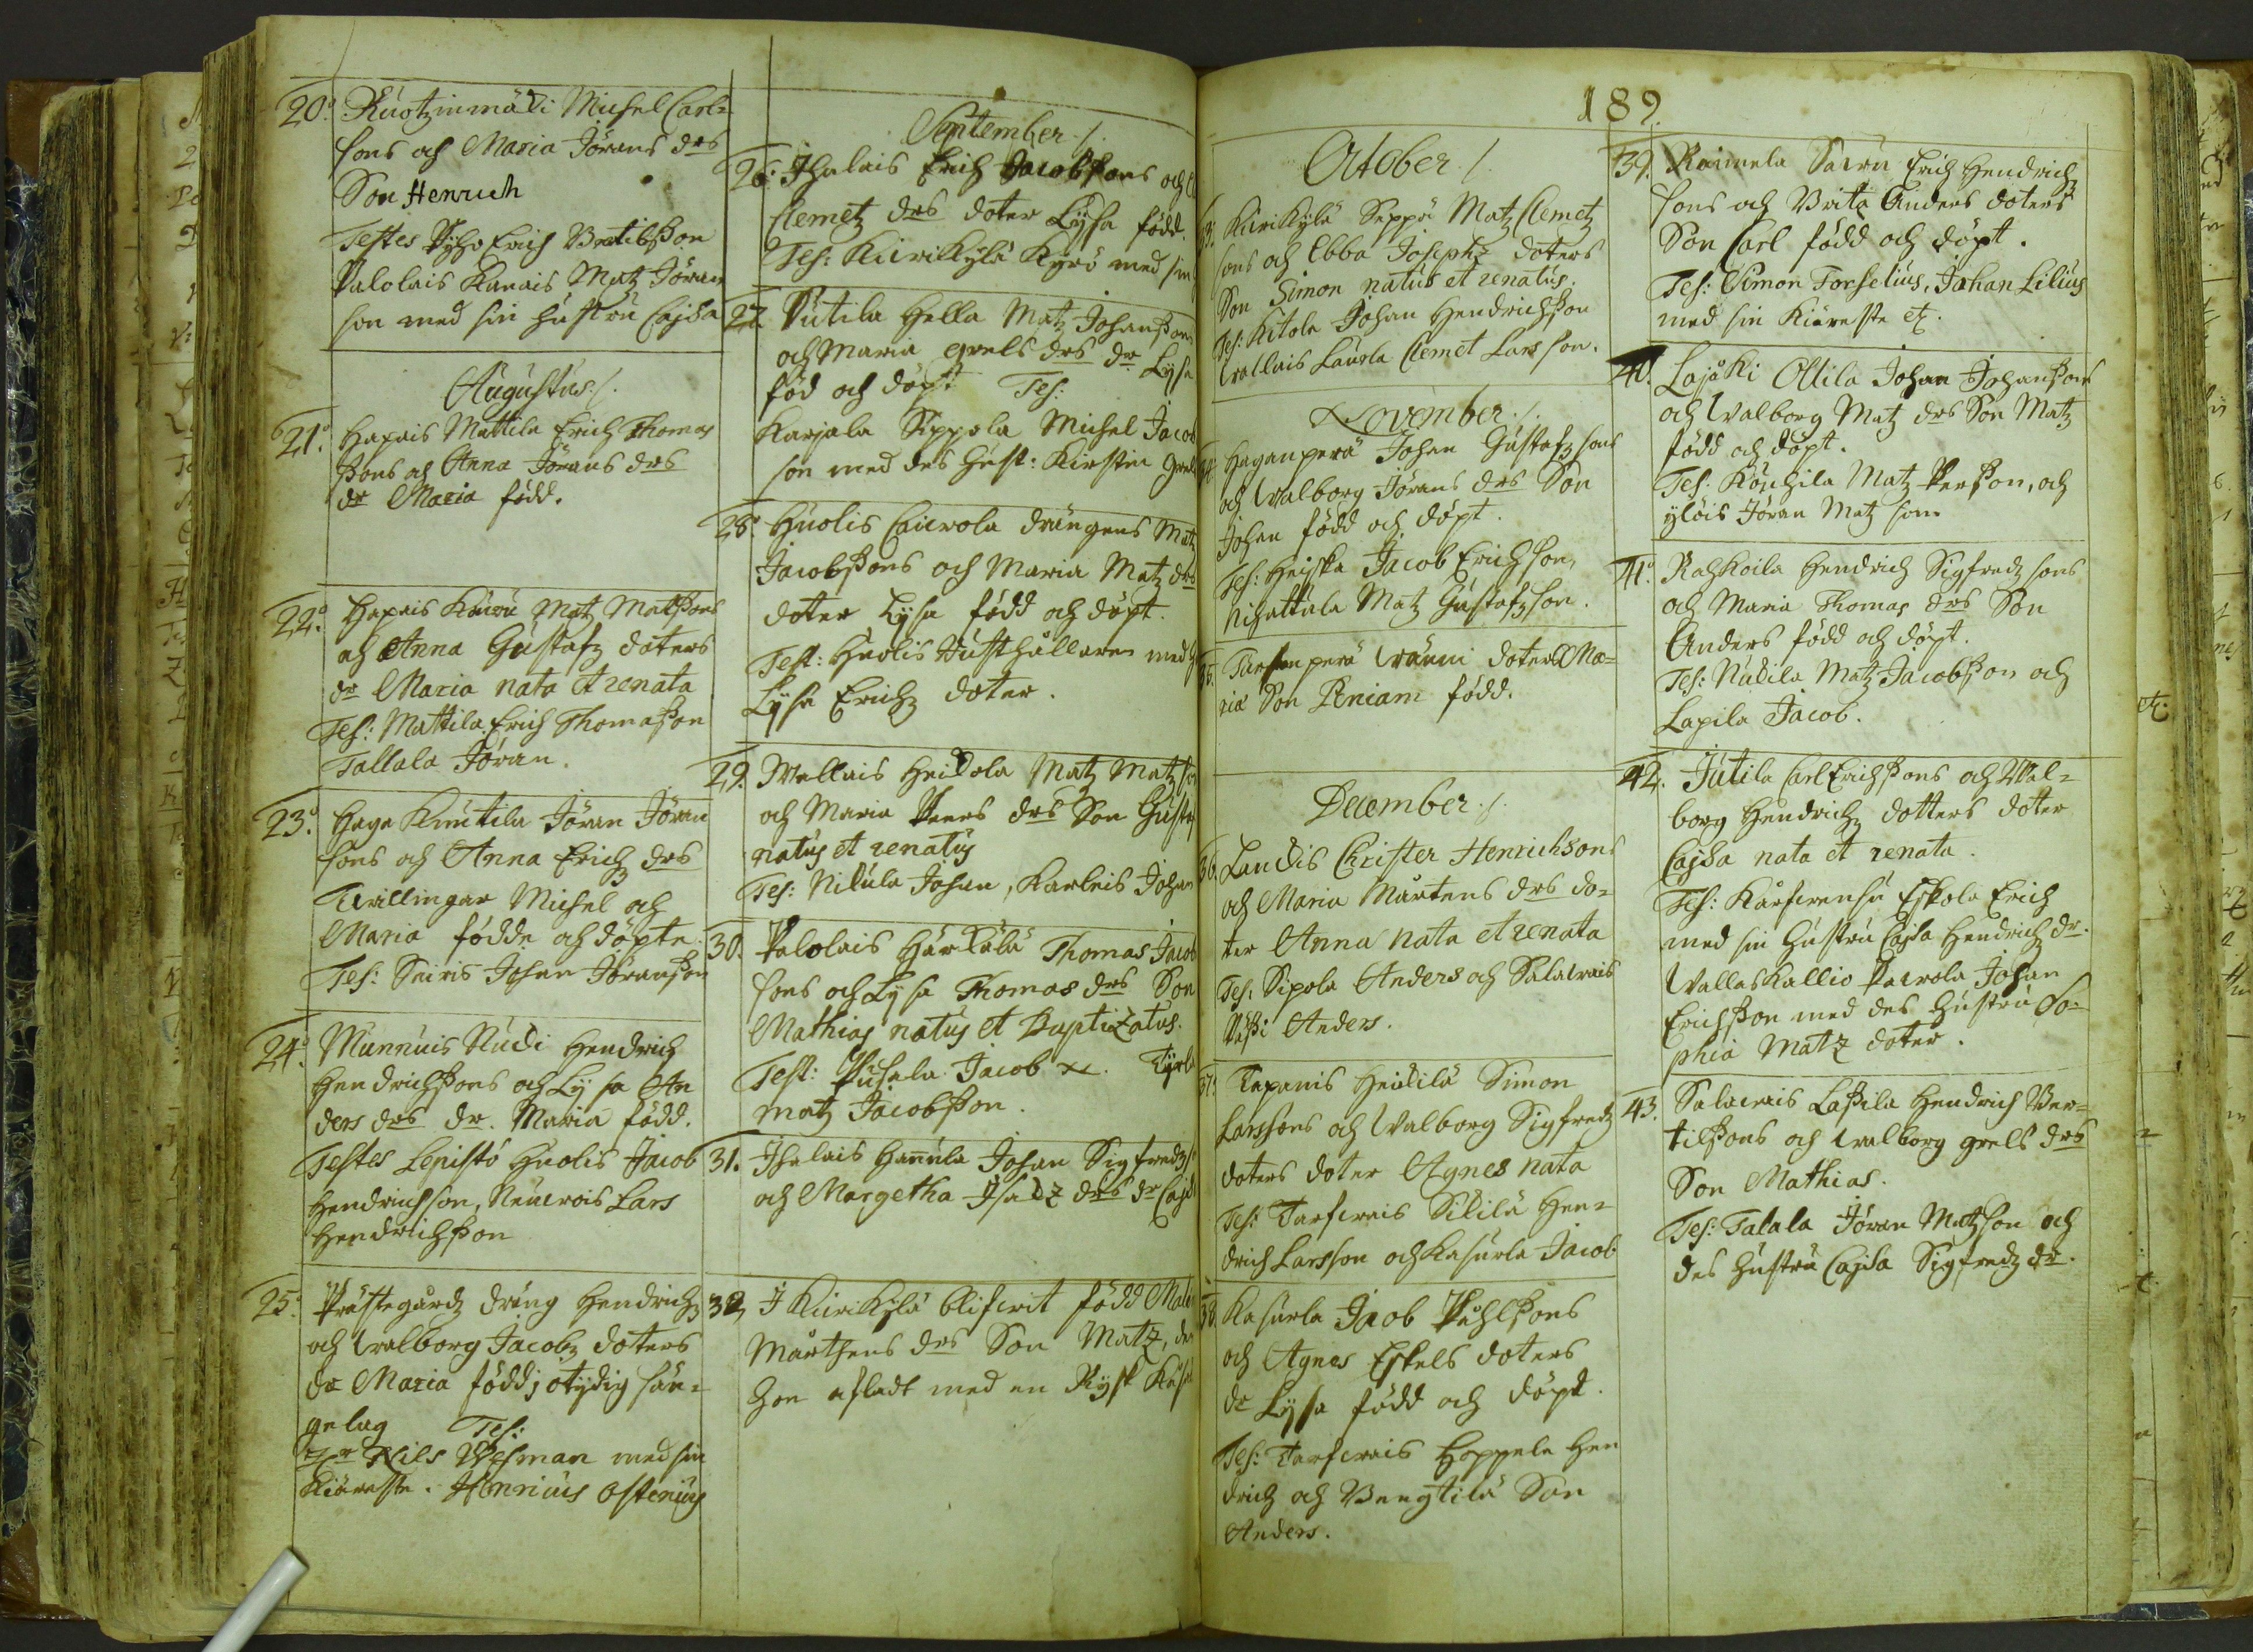 20. Ruotzinmäki Michel Carl-
sons och Maria Jörans drs
Son Henrich
Testes Erich
Palolais Kanais Matz Jöran
son med sin hustru Cajsa
Augustus /.
21. Hapais Mattila Erich Thomas
sons och Anna Jörans drs
dr Maria född.
22. Hapais Matz Matssons
och Anna Gustafz doters
dr Maria nata et renata
Tes: Mattila Erich Thomasson
Tallala Jöran.
23. Haga Knutila Jöran Jöran
sons och Anna Erichz drs
Twillingar Michel och
Maria födde och döpte
Tes: Johan Jöransson
24. Munnuis Nudi Hendrich
Hendrichssons och Lysa An
ders drs dr. Maria född.
Testes Lepistö Huolis Jacob
Hendrichsson, Lars
Hendrichsson
25. Prästegårdz dräng Hendrichz
och Walborg Jacobz doters
dr Maria född j otydig sän-
gelag Tes:
Nils Wesman med sin
Kiäreste. Henricus Ostenius
September /.
26. Ihalais Erich Jacobssons och
Clemetz drs doter Lysa född.
Tes: Kirikylä Kyrö med sin
27. Putila Hella Matz Johanssons
och Maria grels drs dr Lysa
föd och döpt Tes:
Karjala Sippola Michel Jacob
son med des Hust: Kirstin Grels
28. Huolis drängens Matz
Jacobssons och Maria Matz drs
doter Lysa född och döpt.
Test: Huolis Hussthållaren med
Lysa Erichz doter.
29. Wallais Heikola Matz Matzson
och Maria Peers drs Son Gustaf
natus et renatus
Tes: Nikula Johan, Karleis Johan
30. Palolais Härkälä Thomas Jacob
sons och Lysa Thomas drs Son
Mathias natus et Baptizatus.
Test: Puhala Jacob
matz Jacobsson.
31. Ihalais Hannula Johan Sigfredz
och Margetha Isacz drs dr Cajsa
32. I Kirikylä blifwit född
Mårthens drs Son Matz, den
hon afladt med en Rysk
189.
October /.
33. Kirikylä Seppä Matz Clemetz
sons och Ebba Josephz doters
Son Simon natus et renatus.
Tes: Kitola Johan Hendrichsson
Wallais Laurla Clemet Larsson.
November /.
34. Haganperä Johan Gustafz sons
och Walborg Jörans drs Son
Johan född och döpt.
Tes: Heiska Jacob Erichsson,
Nihattula Matz Gustafzson.
35. doters Ma-
ria Son Beniam född.
December /.
36. Laukis Christer Henrichsons
och Maria Mårtens drs do-
ter Anna nata et renata
Tes, Sipola Anders och Salawais
Anders.
37. Tapanis Heikilä Simon
Larssons och Walborg Sigfredz
doters doter Agnes nata
Tes: Tarfwais Hen-
drich Larsson och Kasurla Jacob
38. Kasurla Jacob Påhlssons
och Agnes Eskels doters
dr Lysa född och döpt.
Tes: Tarfwais Hoppala Hen
drich och Bengtilä Son
Anders.
39. Raimela Erich Hendrich
sons och Brita Anders doters
Son Carl född och döpt.
Tes: Simon Forselius, Johan Lilius
med sin Kiäreste etc.
40. Lajoki Ollila Johan Johanssons
och Walborg Matz drs Son Matz
född och döpt.
Tes: Matz Persson, och
Yläis Jöran Matz son
41. Rahkoila Hendrich Sigfredz sons
och Maria Thomas drs Son
Anders född och döpt.
Tes: Matz Jacobsson och
Lapila Jacob.
42. Jutila Carl Erichssons och Wal-
borg Hendrichz dotters doter
Cajsa nata et renata.
Tes: Eskola Erich
med sin Hustru Cajsa Hendrichz dr.
Wallaskallio Johan
Erichsson med des Hustru So-
phia Matz doter.
43. Salawais Lassila Hendrich Ber-
tilssons och Walborg grels drs
Son Mathias.
Tes: Talala Jöran Matzson och
des Hustru Cajsa Sigfredz dr.